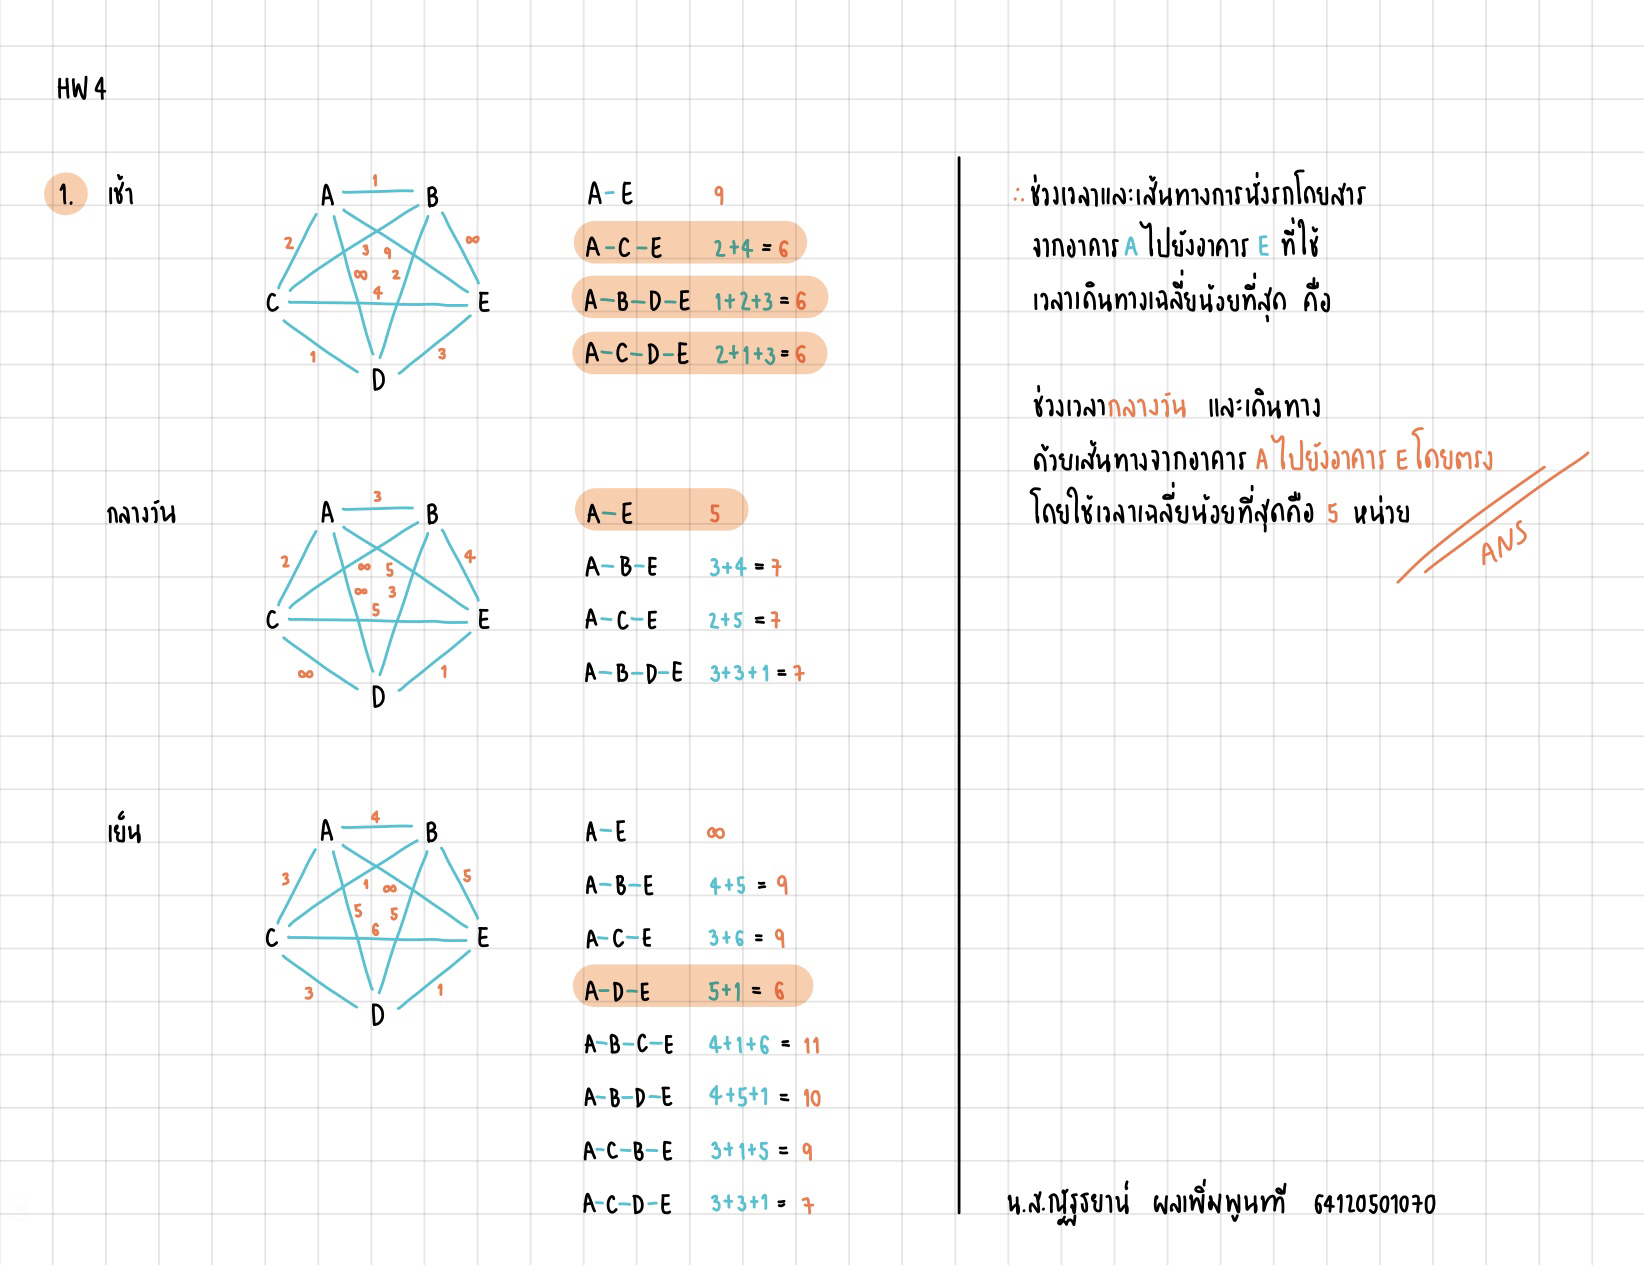 HW 4
1. เช้า
A 1 B
2 3 9 ∞
∞ 2
C 4 E
1 3
D
A-E 9
A-C-E 2+4 = 6
A-B-D-E 1+2+3 = 6
A-C-D-E 2+1+3 = 6
กลางวัน
A 3 B
2 ∞ 5 4
∞ 3
C 5 E
∞ 1
D
A-E 5
A-B-E 3+4 = 7
A-C-E 2+5 = 7
A-B-D-E 3+3+1 = 7
เย็น
A 4 B
3 1 ∞ 5
5 5
C 6 E
3 1
D
A-E ∞
A-B-E 4+5 = 9
A-C-E 3+6 = 9
A-D-E 5+1 = 6
A-B-C-E 4+1+6 = 11
A-B-D-E 4+5+1 = 10
A-C-B-E 3+1+5 = 9
A-C-D-E 3+3+1 = 7
∴ ช่วงเวลาและเส้นทางการนั่งรถโดยสาร
จากอาคาร A ไปยังอาคาร E ที่ใช้
เวลาเดินทางเฉลี่ยน้อยที่สุด คือ
ช่วงเวลากลางวัน และเดินทาง
ด้วยเส้นทางจากอาคาร A ไปยังอาคาร E โดยตรง
โดยใช้เวลาเฉลี่ยน้อยที่สุดคือ 5 หน่วย
ANS
น.ส. ผลเพิ่มพูนทวี 64120501070